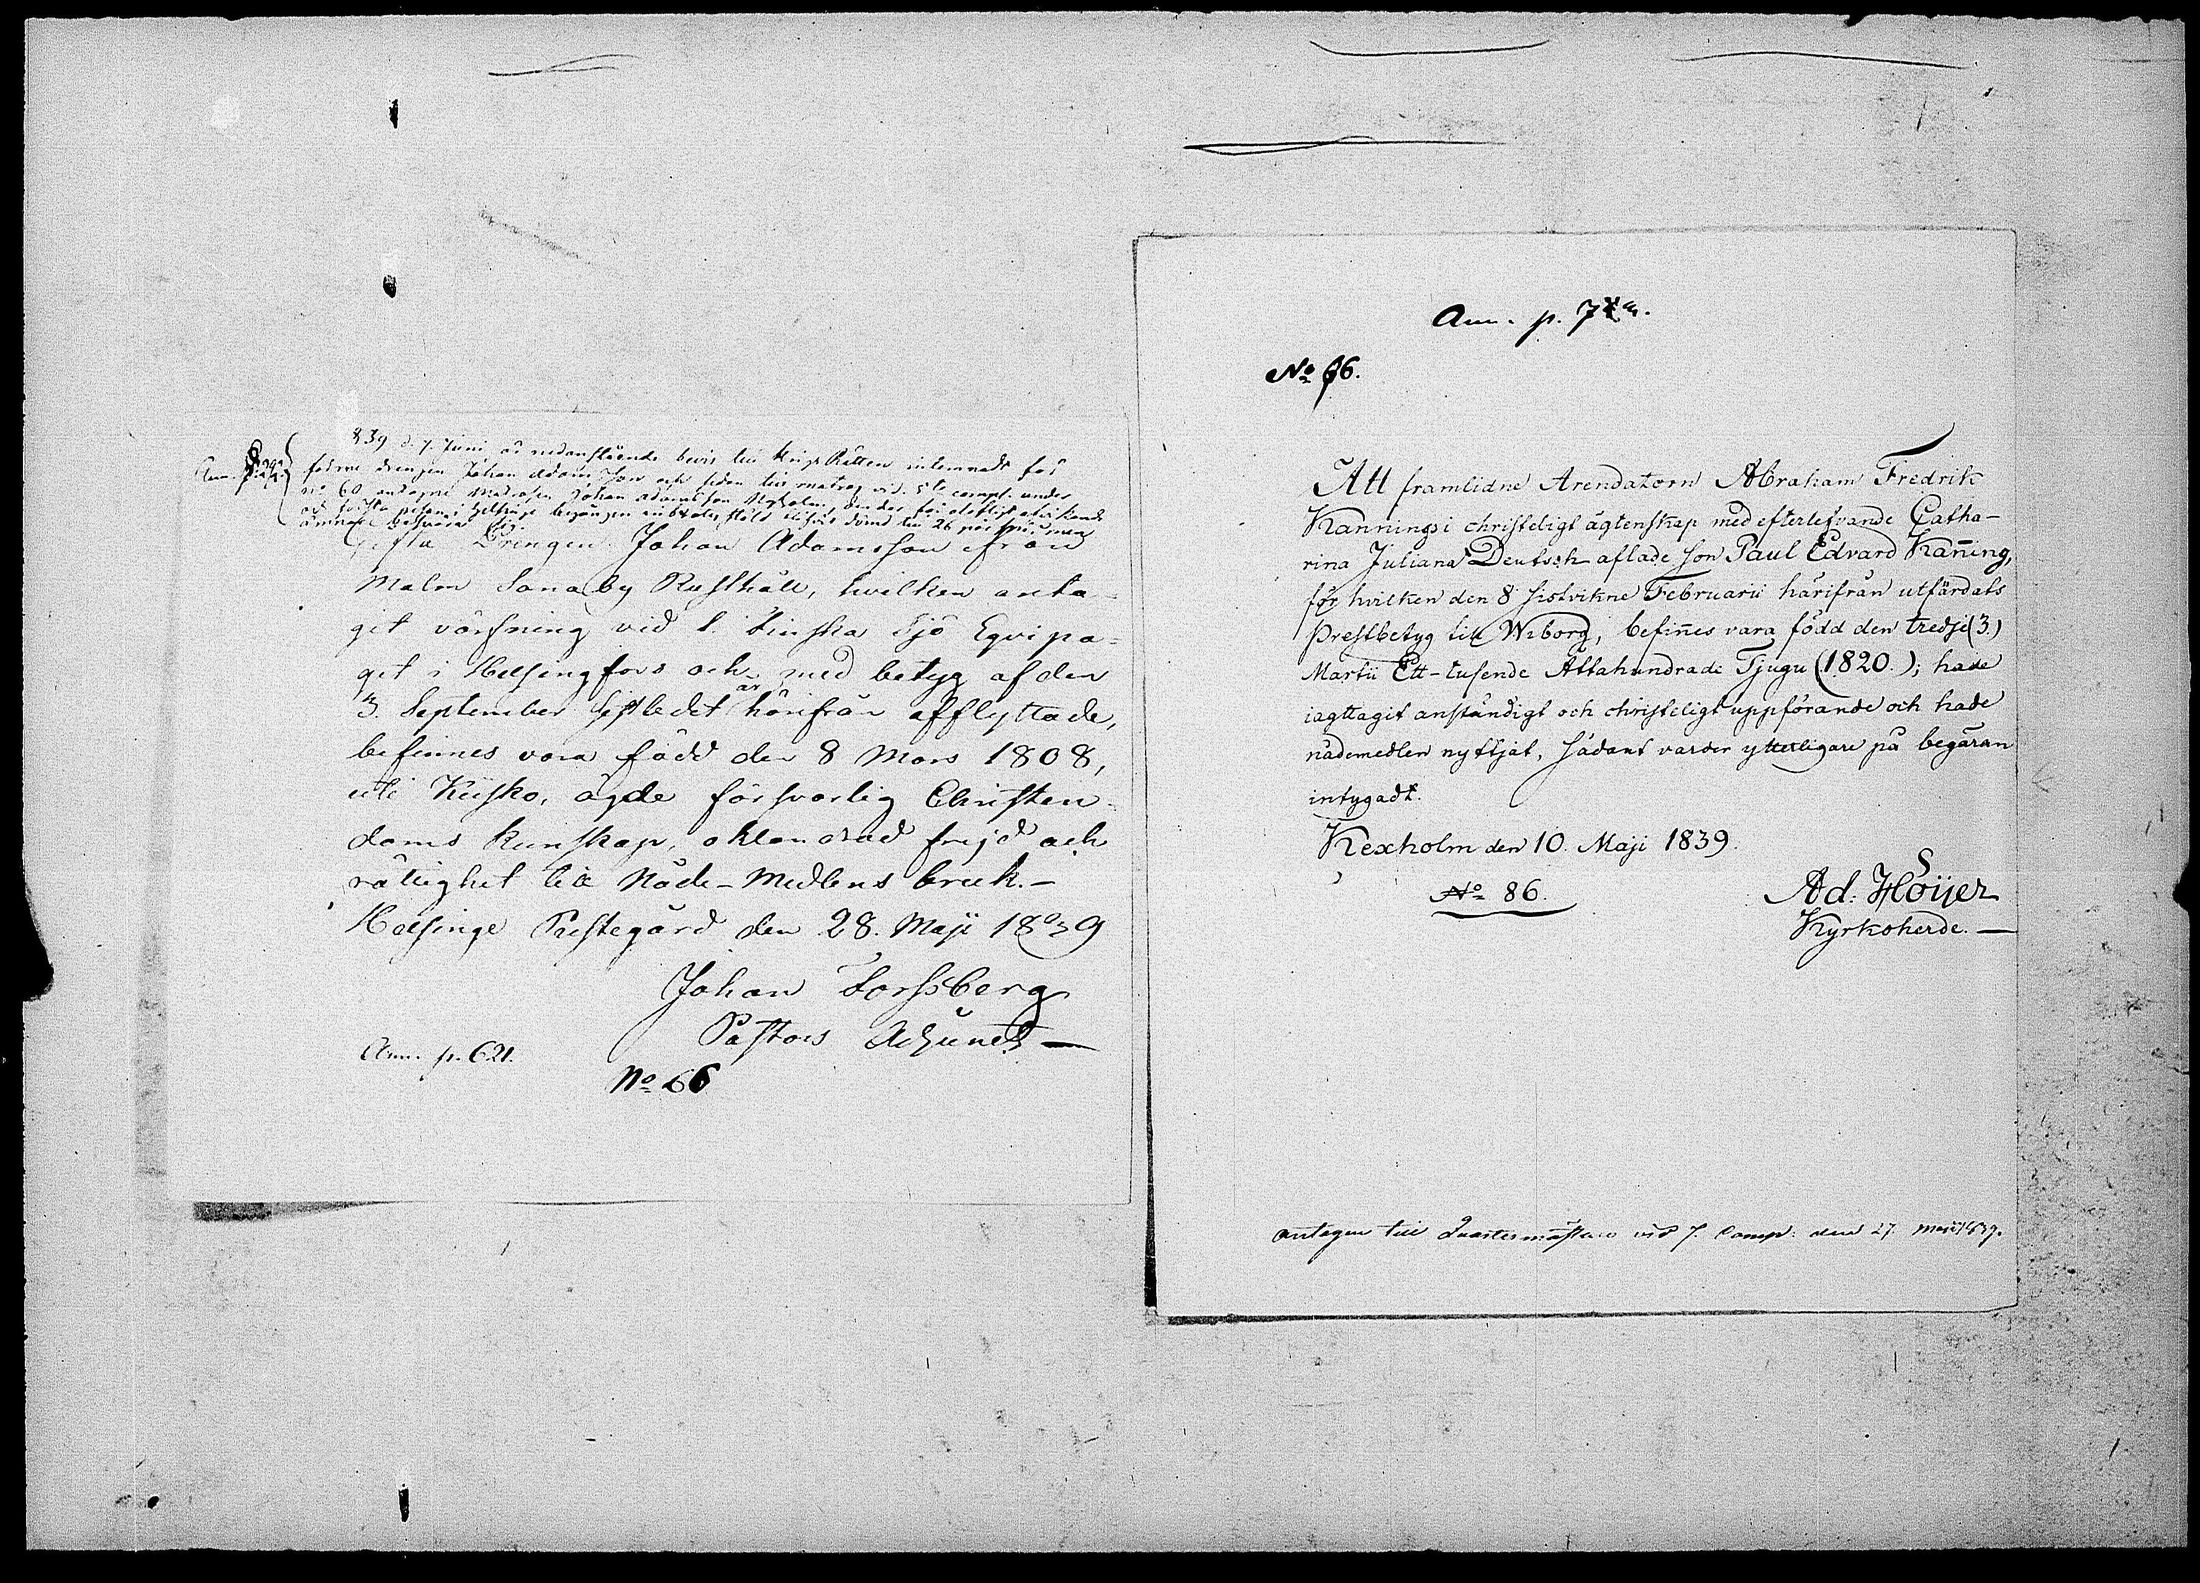 839 d. 7. Juni, är nedanstående bevis till KrigsRätten inlemnadt för
förre drengen Johan Adamsson och sedan till matros vid 5te comp. under
no 60 antagne Matrosen Johan Adamsson
Gifta Drengen Johan Adamsson ifrån
Malm Sonaby Rusthåll, hvilken anta-
git värfning vid 1. Finska Sjö Eqvipa-
get i Helsingfors och med betyg af den
3. September sistledet år härifrån afflyttade,
befinnes vara född den 8 Mars 1808,
uti Kiisko, ägde försvarlig Christen-
doms kunskap, oklandrad frejd och
rättighet till Nåde-Medlens bruk.-
Helsinge Prestegård den 28. Maji 1839
Johan Forssberg
Pastors Adjunct
Ann. p. 621.
No 66
Ann. p.
No 66.
Att framlidne Arendatorn Abraham Fredrik
Kannings i christeligt ägtenskap med efterlefvande Catha-
rina Juliana Deutsch aflade son Paul Edvard Kan̄ing,
för hvilken den 8 sistvikne Februarii härifrån utfärdats
Prestbetyg till Wiborg, befin̄es vara född den tredje (3.)
Martii Ett-tusende Åttahundrade Tjugu (1820.); hade
iagttagit anständigt och christeligt uppförande och hade
nådemedlen nyttjat, sådant varder ytterligare på begäran
intygadt.
Kexholm den 10. Maji 1839.
No 86.
Ad: Höijer
Kyrkoherde.
antagen till Quartermästare vid 7. Comp: den 27. Maji 1839.